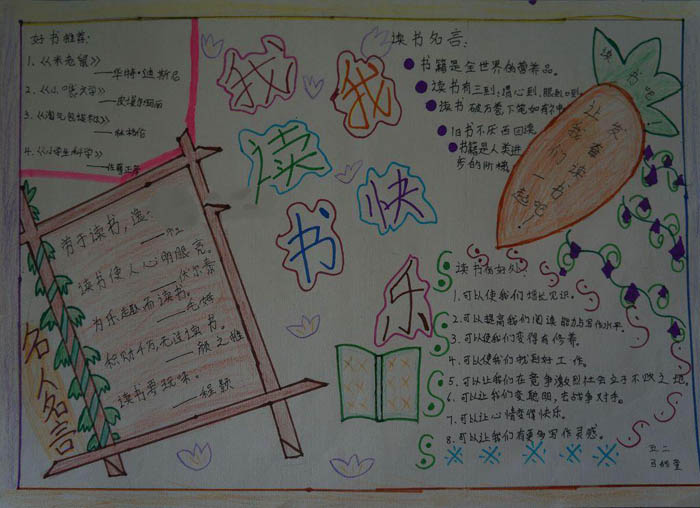 好书推荐:
1.《米老鼠》
——华特·迪斯尼
2.《小
3.《淘气包
4.《小学生科学》
我读书
我快乐
读书名言:
书籍是全世界的营养品。
读书有三到:
读书破万卷下笔如有神
旧书不厌百回读
书籍是人类进
步的阶梯
读书吧!
让我们一起
发奋读书吧!
名人名言
为乐趣而读书。
积财千万,无过读书。
——颜之推
读书要玩味。
——程颢
读书的好处:
1.可以使我们增长见识。
2.可以提高我们阅读能力与写作水平。
3.可以使我们变得有修养。
4.可以使我们找到好工作。
5.可以让我们在竞争激烈社会立于不败之地
6.可以让我们变聪明,去战争对手。
7.可以让心情变得快乐。
8.可以让我们有更多写作灵感。
五二